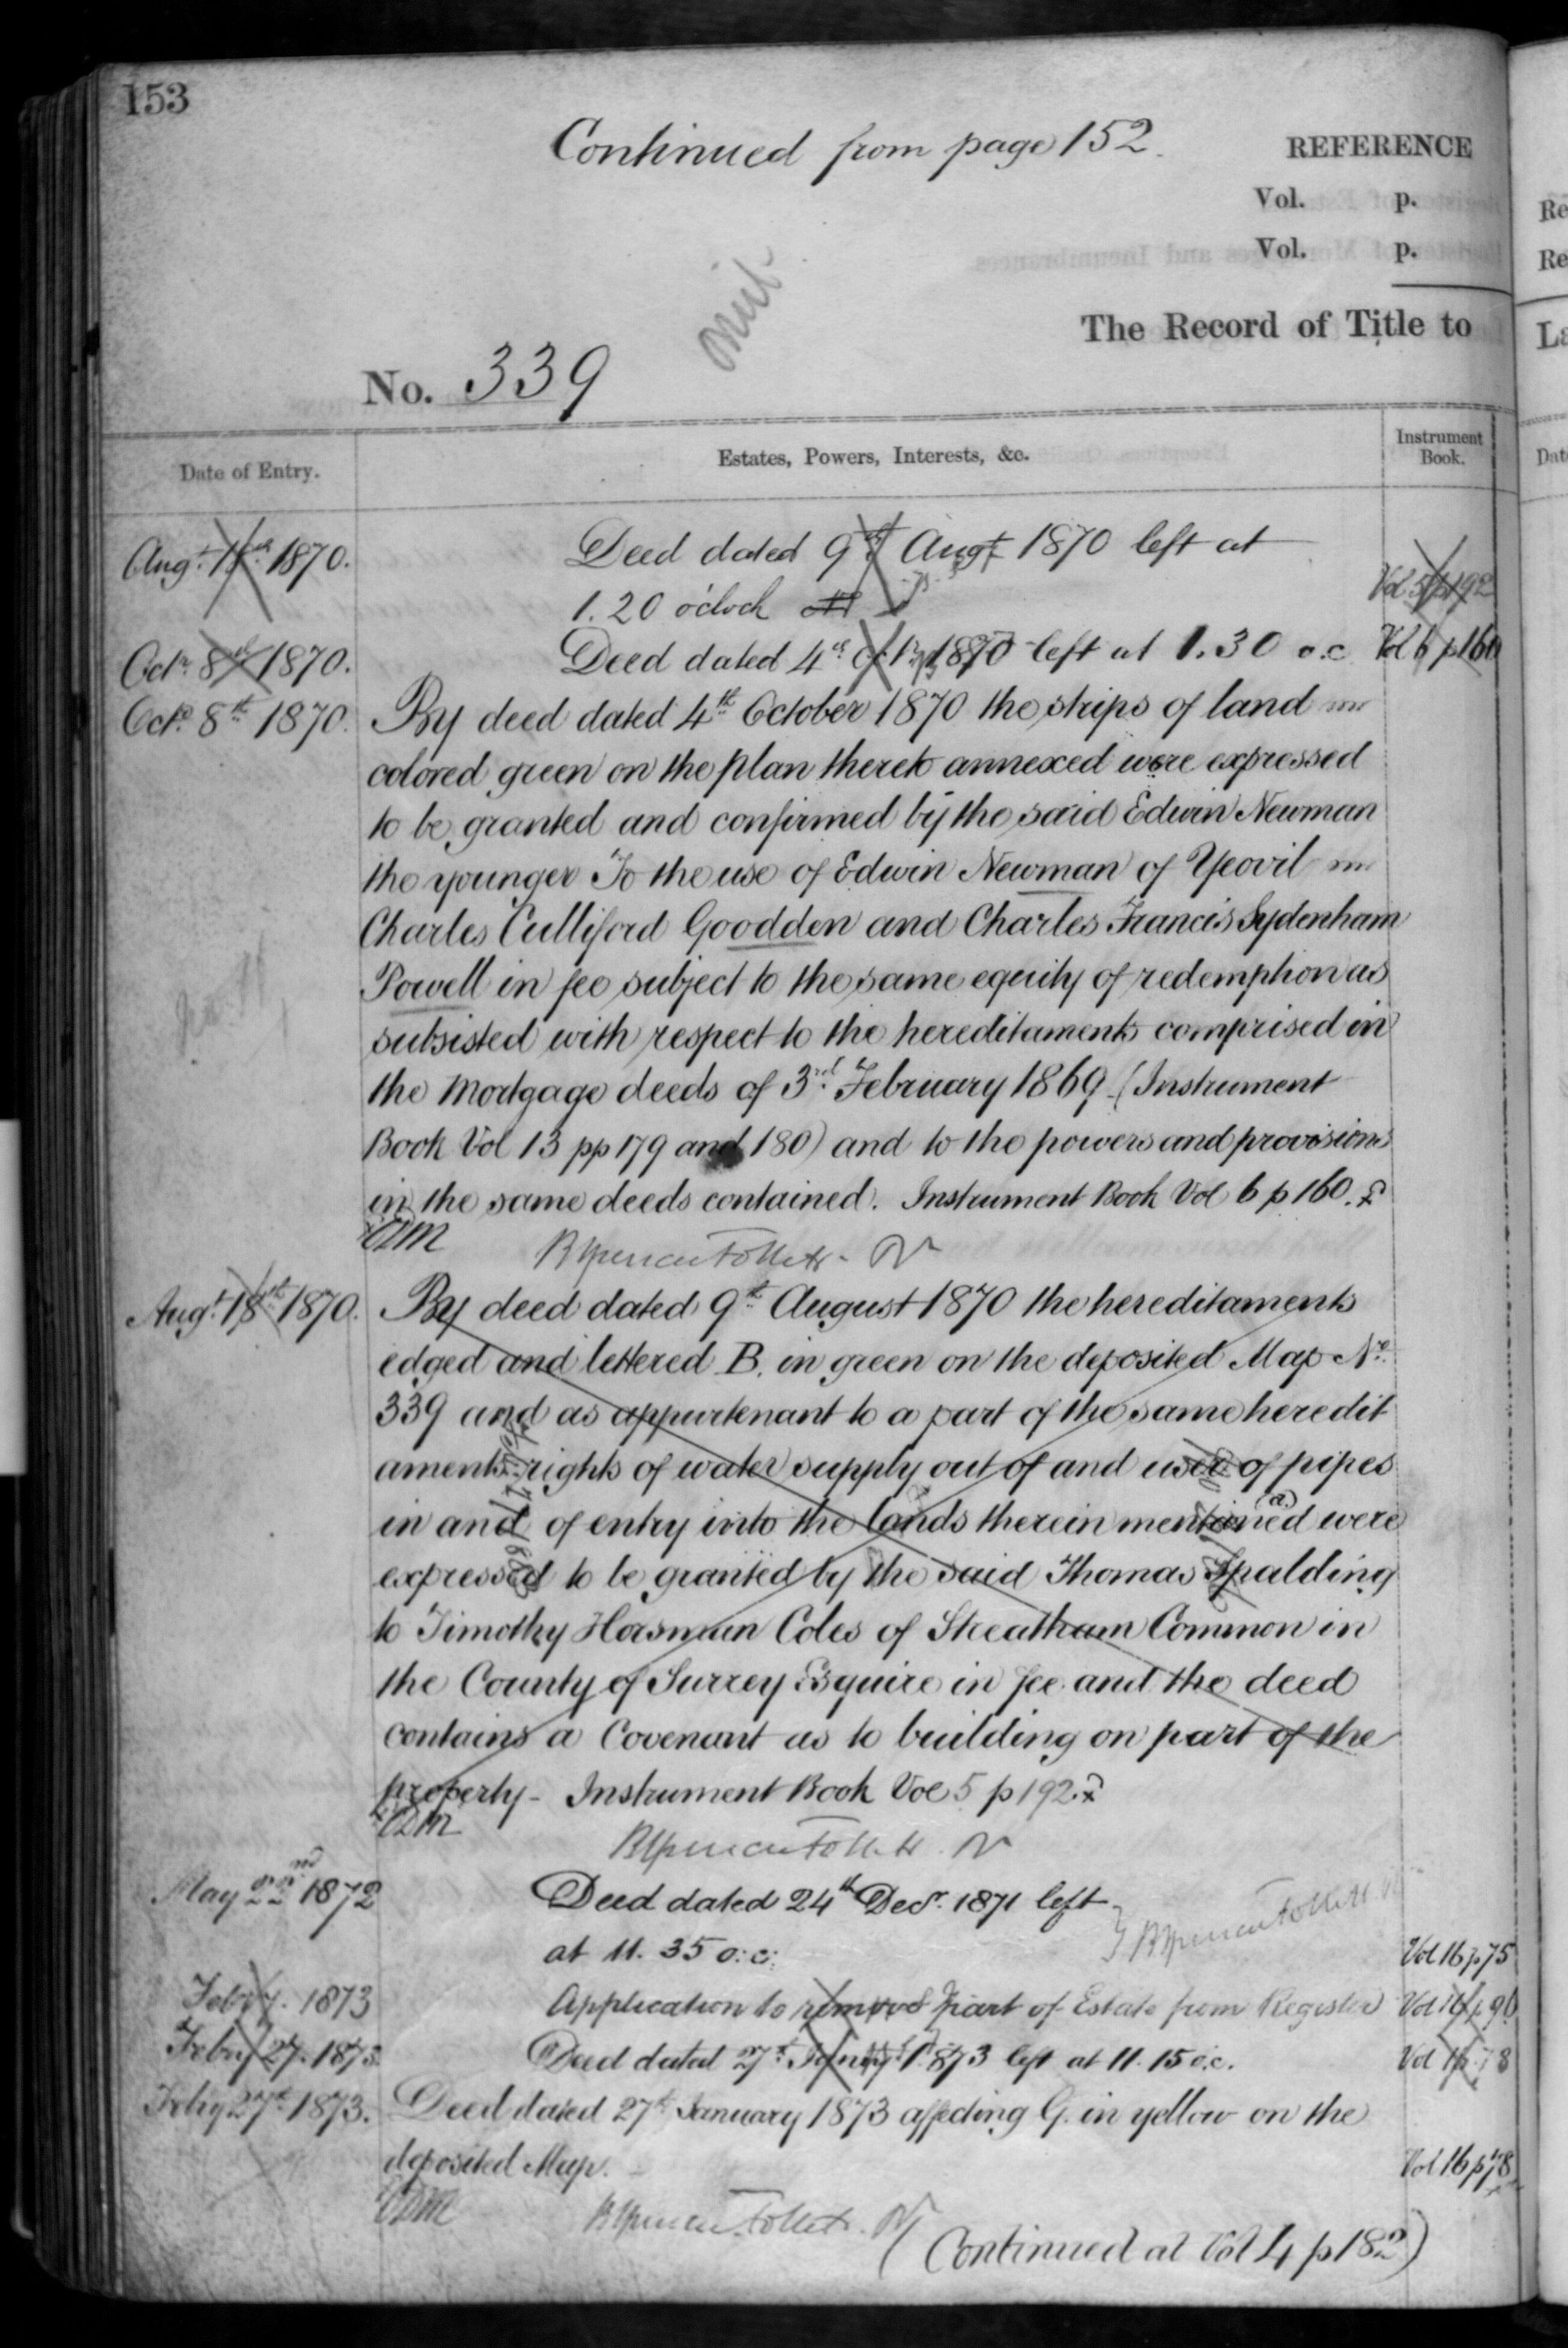 153
Continued from page 152.
REFERENCE
Vol. p.
Vol. p.
omit
The Record of Title to
No. 339
Date of Entry.
Estates, Powers, Interests, &c.
Instrument Book.
Augt. 18th 1870. Deed dated 9th Augt 1870 left at
1.20 o'clock Vol 5 p 192
Octr. 8th 1870. Deed dated 4th Octr. 1870 left at 1.30 o.c Vol 6 p 160
Octr. 8th 1870. By deed dated 4th October 1870 the strips of land
colored green on the plan thereto annexed were expressed
to be granted and confirmed by the said Edwin Newman
the younger To the use of Edwin Newman of Yeovil
Charles Culliford Goodden and Charles Francis Sydenham
Powell in fee subject to the same equity of redemption as
subsisted with respect to the hereditaments comprised in
the Mortgage deeds of 3rd February 1869 (Instrument
Book Vol 13 pp 179 and 180) and to the powers and provisions
in the same deeds contained. Instrument Book Vol 6 p 160.
Augt. 18th 1870. By deed dated 9th August 1870 the hereditaments
edged and lettered B. in green on the deposited Map No.
339 and as appurtenant to a part of the same heredit
aments rights of water supply out of and user of pipes
in and of entry into the lands therein mentioned were
expressed to be granted by the said Thomas Spalding
to Timothy Horsman Coles of Streatham Common in
the County of Surrey Esquire in fee and the deed
contains a Covenant as to building on part of the
property - Instrument Book Vol 5 p 192.
May 22nd 1872 Deed dated 24th Decr. 1871 left
at 11.35 o:c: Vol 16 p 75
Feby 7. 1873 Application to remove part of Estate from Register
Feby 27. 1873 Deed dated 27th Jany 1873 left at 11.15 o.c.
Feby 27th 1873. Deed dated 27th January 1873 affecting G. in yellow on the
deposited Map. Vol 16 p 78
(Continued at Vol 4 p 182)